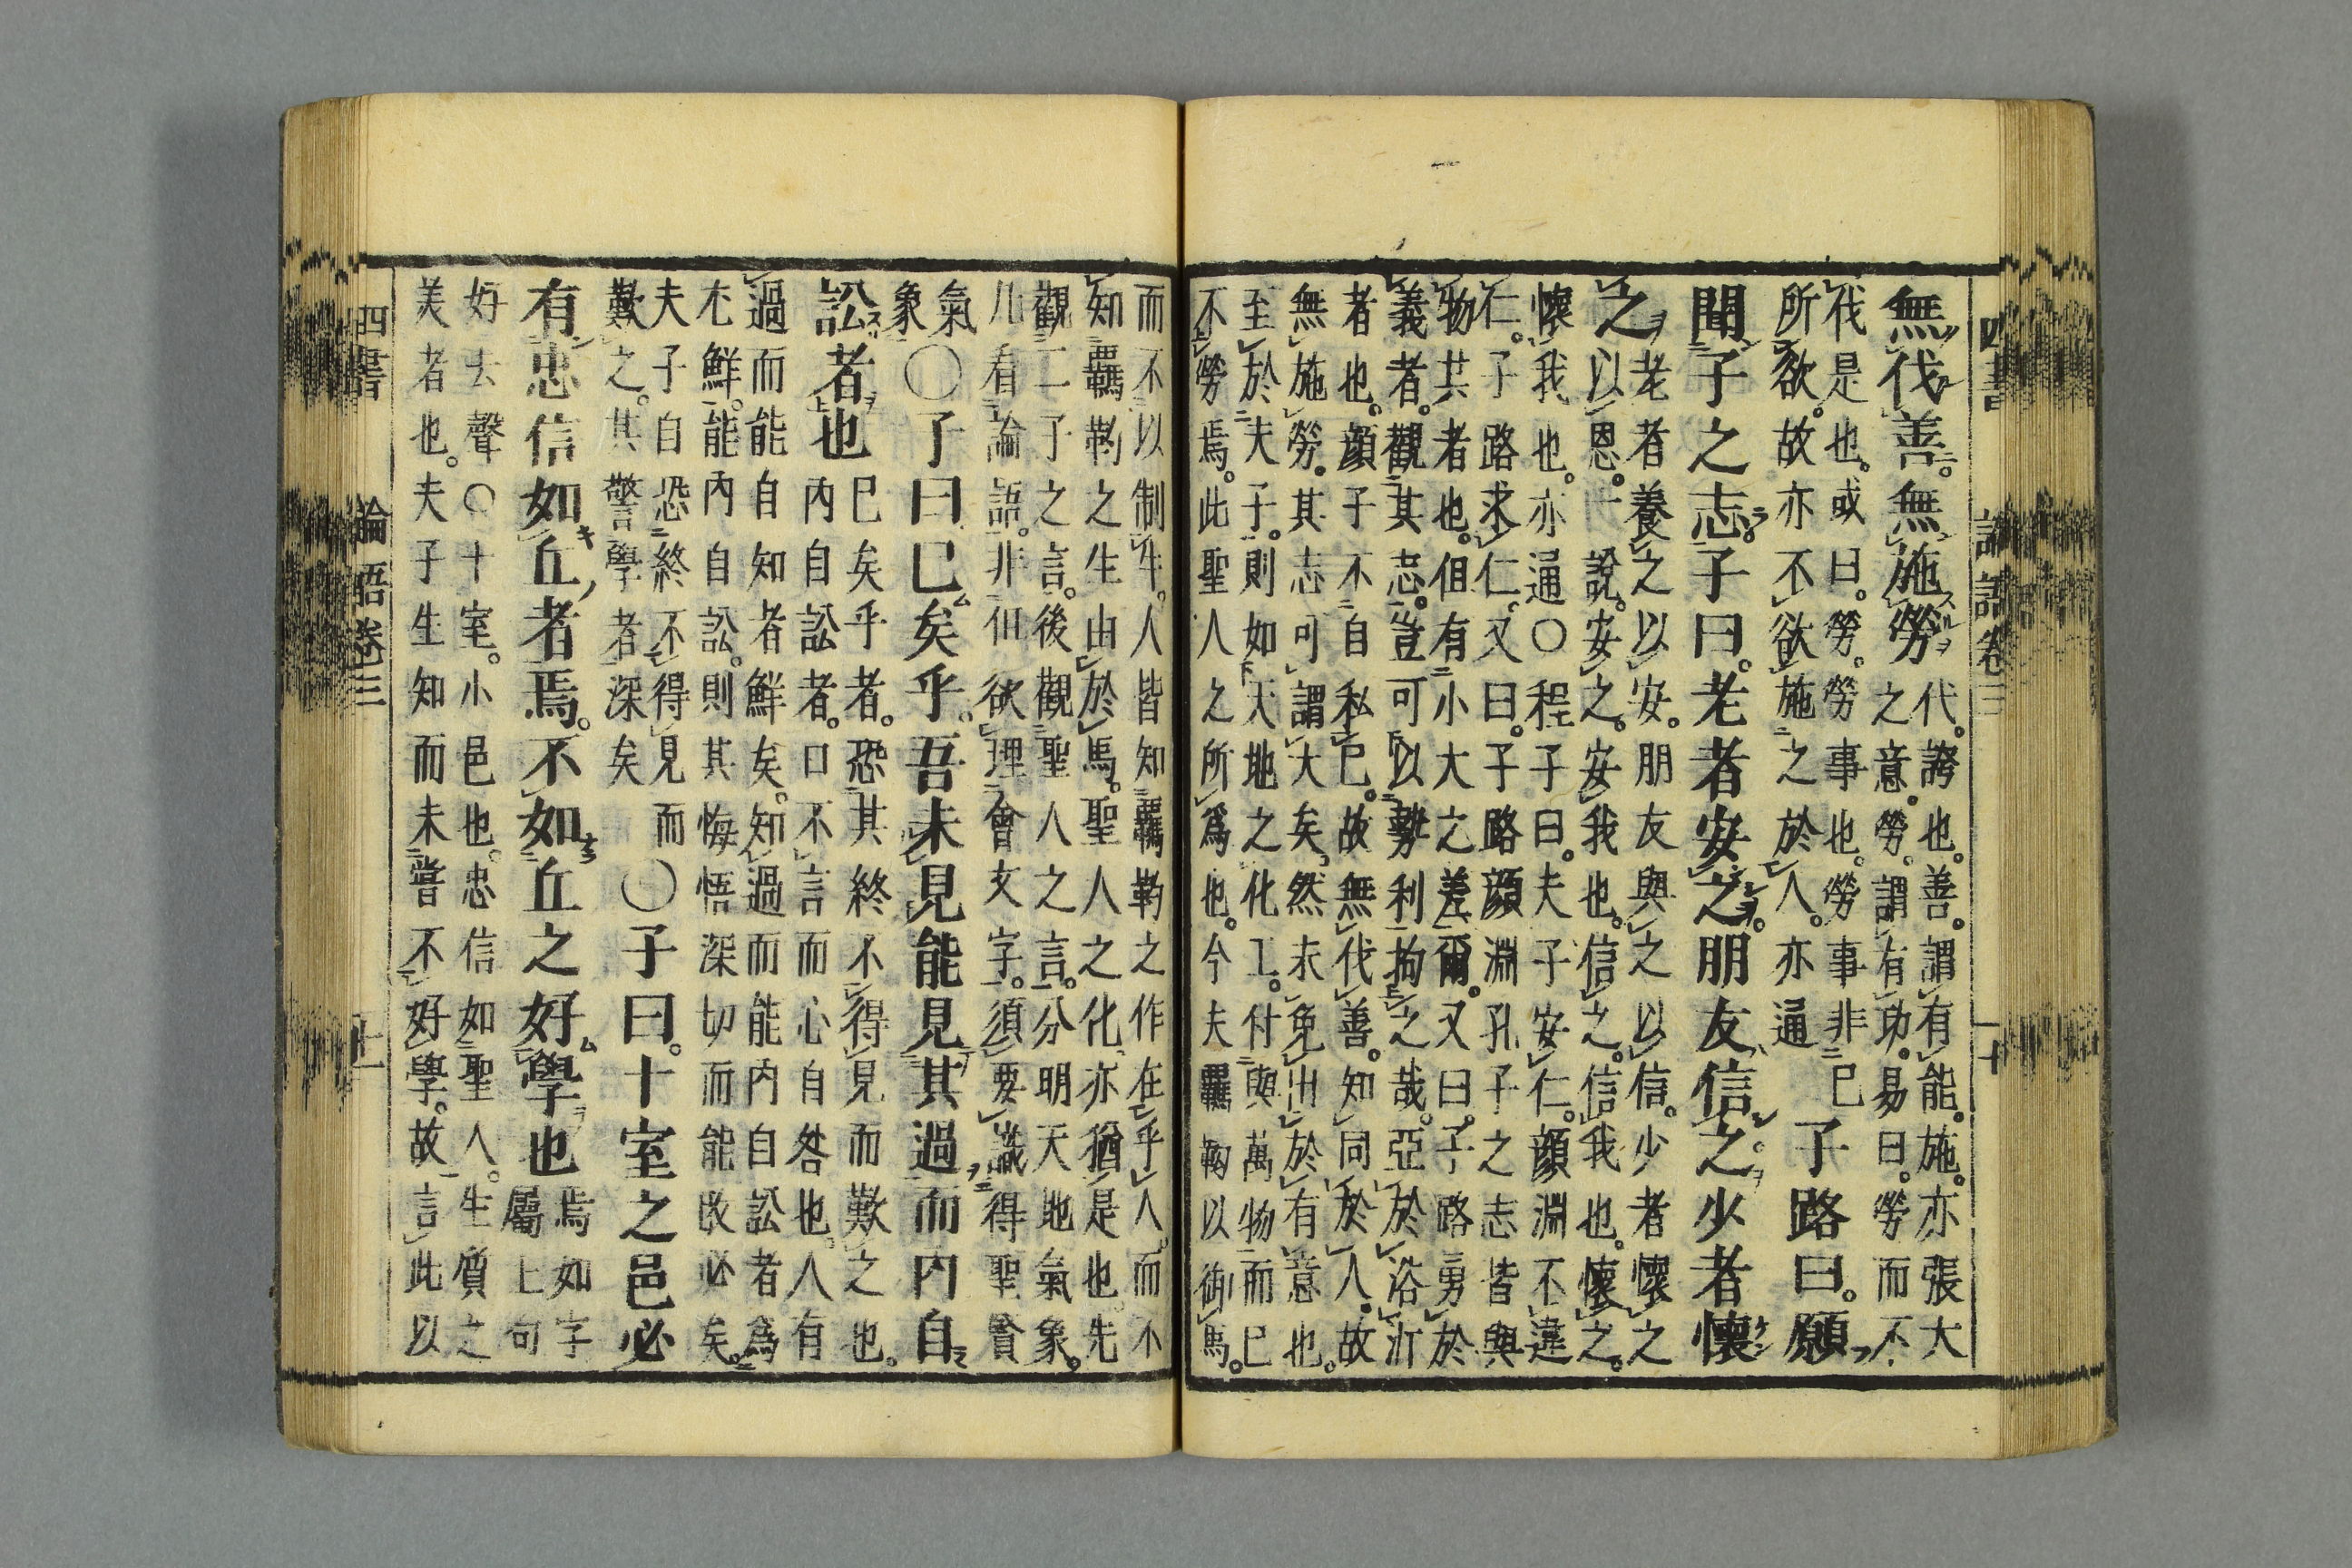 四書 論語卷三 十
無伐善。無施勞
伐。誇也。善。謂有能。施。亦張大
之意。勞。謂有功。易曰。勞而不
伐是也。或曰。勞。勞事也。勞事非己
所欲。故亦不欲施之於人。亦通
子路曰。願
聞子之志。子曰。老者安之。朋友信之。少者懷
之
老者養之以安。朋友與之以信。少者懷之
以恩。一說。安之。安我也。信之。信我也。懷之。
懷我也。亦通〇程子曰。夫子安仁。顏淵不違
仁。子路求仁。又曰。子路顏淵孔子之志皆與
物共者也。但有小大之差爾。又曰。子路勇於
義者。觀其志。豈可以勢利拘之哉。亞於浴沂
者也。顏子不自私已。故無伐善。知同於人。故
無施勞。其志可謂大矣。然未免出於有意也。
至於夫子。則如天地之化工。付與萬物而已
不勞焉。此聖人之所爲也。今夫羈靮以御馬。
而不以制牛。人皆知羈靮之作在乎人。而不
知羈靮之生由於馬。聖人之化。亦猶是也。先
觀二子之言。後觀聖人之言。分明天地氣象。
凡看論語。非但欲理會文字。須要識得聖賢
氣象
〇子曰。已矣乎。吾未見能見其過而內自
訟者也
已矣乎者。恐其終不得見而歎之也。
內自訟者。口不言而心自咎也。人有
過而能自知者鮮矣。知過而能內自訟者爲
尤鮮。能內自訟。則其悔悟深切而能改必矣。
夫子自恐終不得見而
歎之。其警學者深矣
〇子曰。十室之邑必
有忠信如丘者焉。不如丘之好學也
焉如字
屬上句
好去聲〇十室。小邑也。忠信如聖人。生質之
美者也。夫子生知而未嘗不好學。故言此以
四書 論語卷三 十一